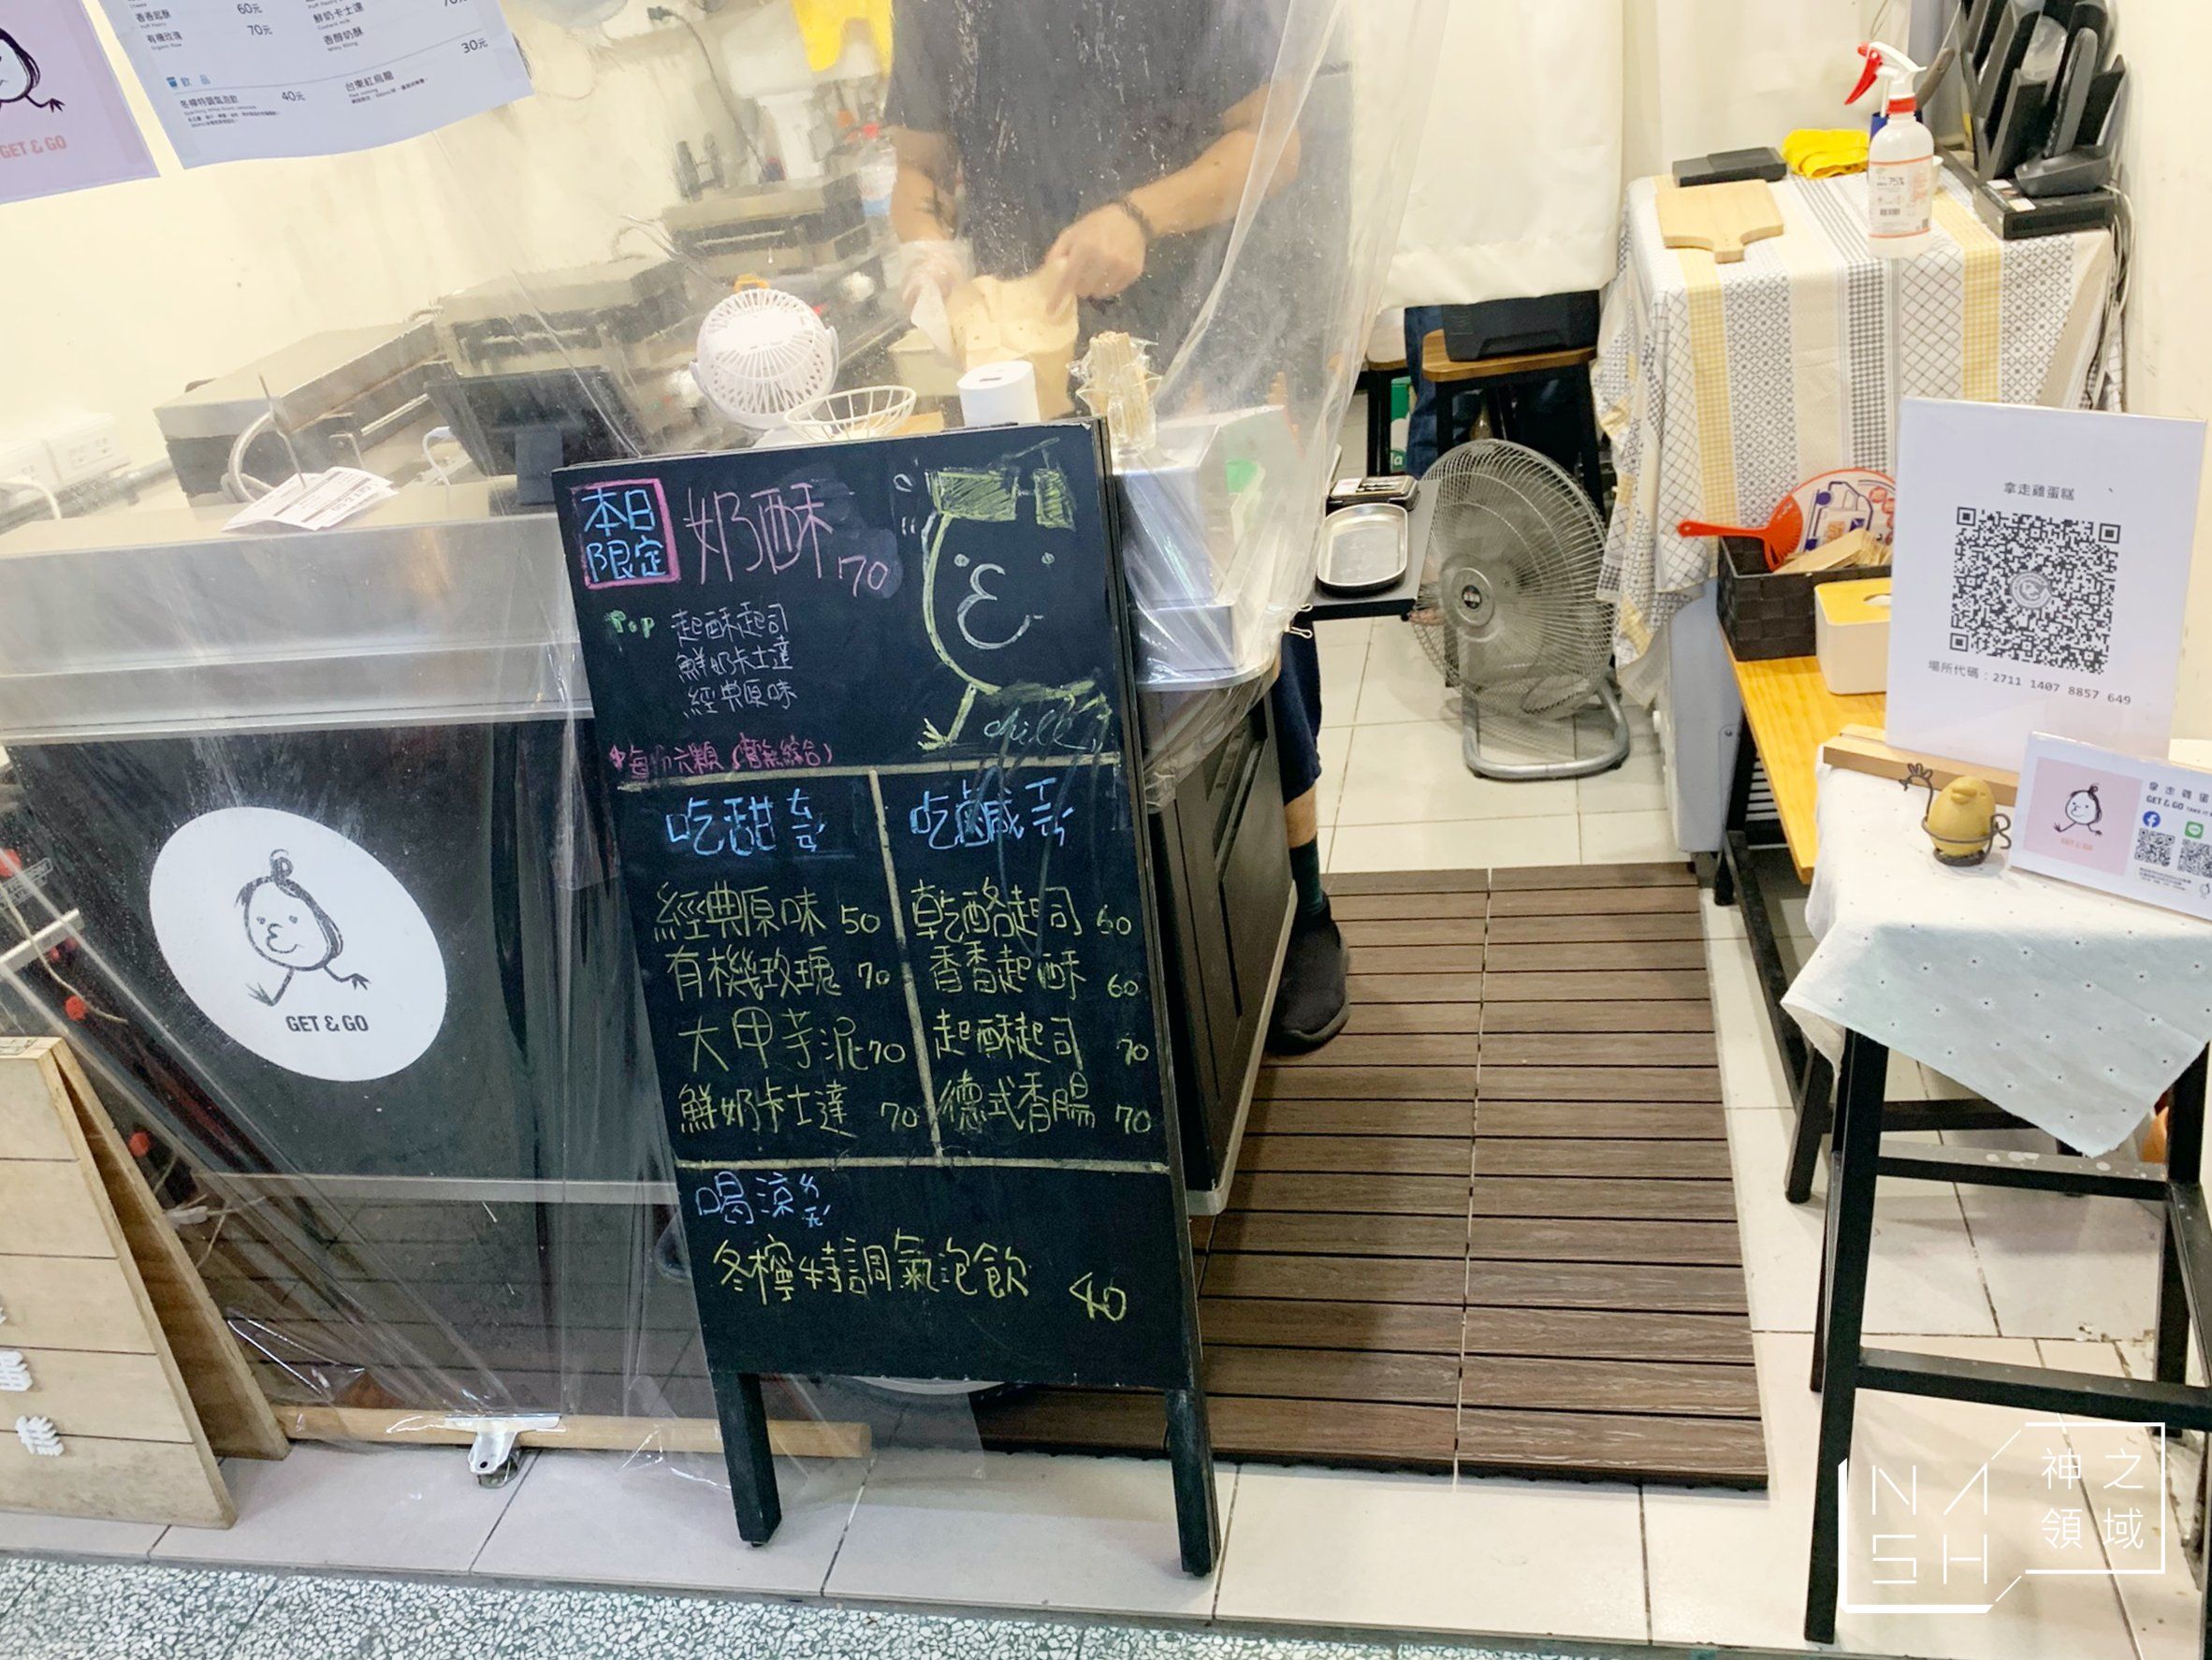 香香起酥 60元
有機玫瑰 70元
鮮奶卡士達
香醇奶酥
30元
飲品
冬檸特調氣泡飲 40元
台東紅烏龍
GET & GO
本日
限定
奶酥 70
Top
起酥起司
鮮奶卡士達
經典原味
六顆
綜合)
吃甜ㄊㄧㄢˊ
吃鹹
經典原味 50
有機玫瑰 70
大甲芋泥 70
鮮奶卡士達 70
乾酪起司 60
香香起酥 60
起酥起司 70
德式香腸 70
喝涼
冬檸特調氣泡飲 40
chill
GET & GO
拿走雞蛋糕
場所代碼：2711 1407 8857 649
拿走雞蛋
GET & GO
GET & GO
NASH
神之
領域